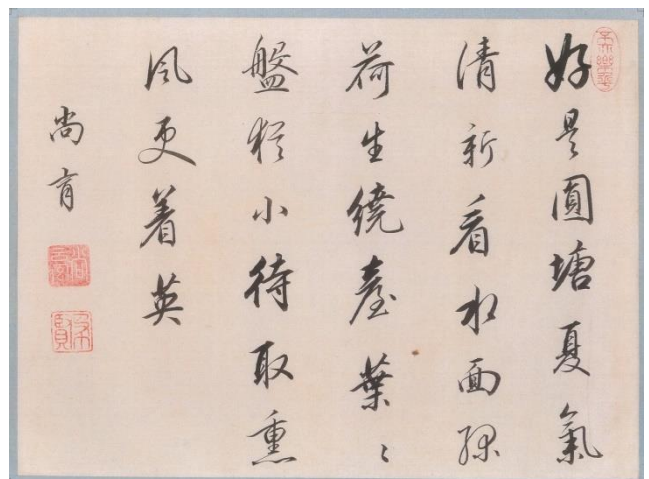 好是圓塘夏氣
清新看水面綠
荷生繞臺葉〻
盤猶小待取熏
風更着英
尚育